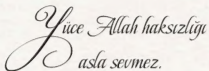 Yüce Allah haksızlığı
asla sevmez.